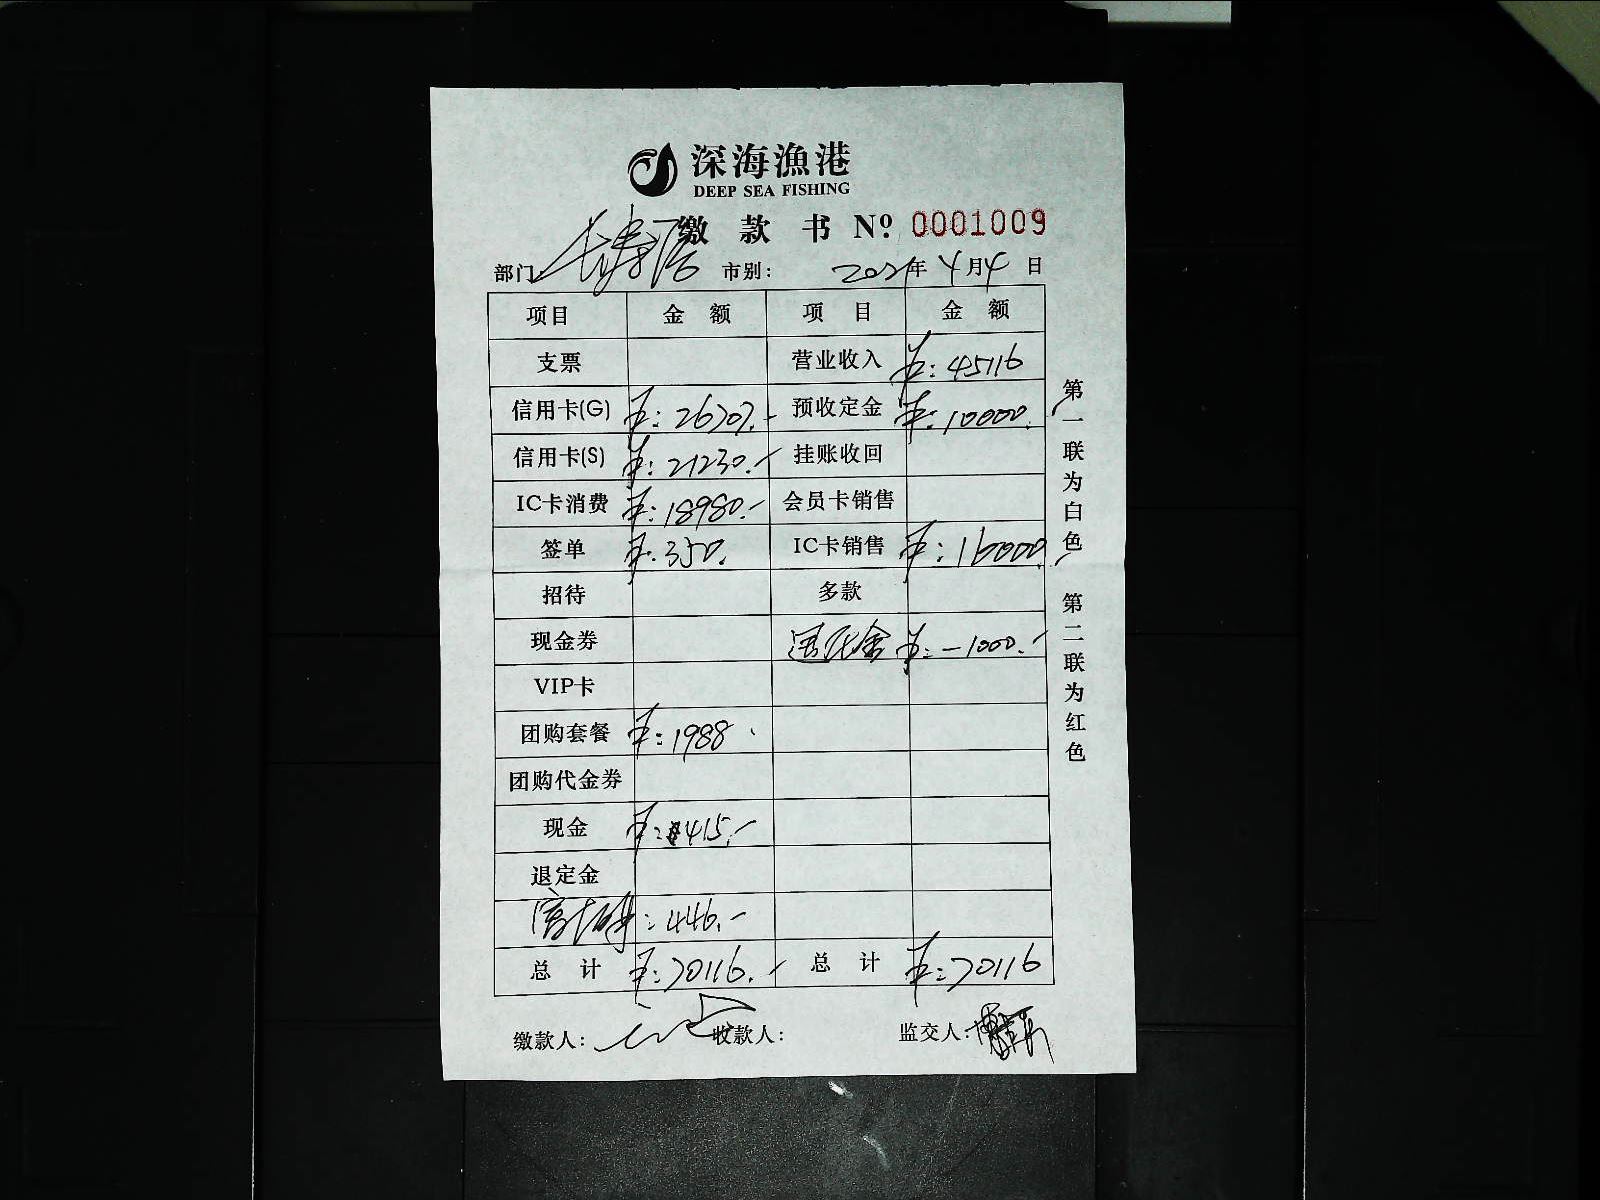 深海漁港
DEEP SEA FISHING
缴 款 书 Nº 0001009
部门: 长寿店 市别: 2021年4月4日
项目 金 额 项 目 金 额
支票 营业收入 ¥:45116
信用卡(G) ¥:26707.- 预收定金 ¥:10000.-
信用卡(S) ¥:21230.- 挂账收回
IC卡消费 ¥:18980.- 会员卡销售
签单 ¥:350. IC卡销售 ¥:16000.-
招待 多款
现金券 ¥:-1000.-
VIP卡
团购套餐 ¥:1988
团购代金券
现金 ¥:415.-
退定金
:446.-
总 计 ¥:70116.- 总 计 ¥:70116
缴款人: 收款人: 监交人:
第一联为白色 第二联为红色